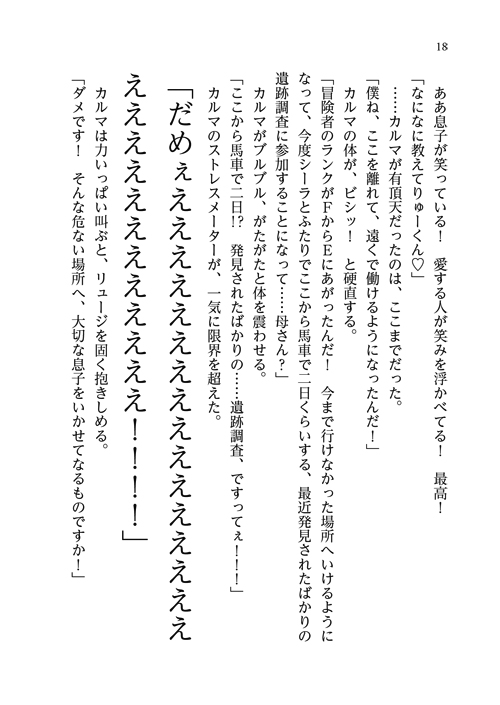 18
ああ息子が笑っている！　愛する人が笑みを浮かべてる！　最高！
「なになに教えてりゅーくん♡」
……カルマが有頂天だったのは、ここまでだった。
「僕ね、ここを離れて、遠くで働けるようになったんだ！」
カルマの体が、ビシッ！　と硬直する。
「冒険者のランクがＦからＥにあがったんだ！　今まで行けなかった場所へいけるように
なって、今度シーラとふたりでここから馬車で二日くらいする、最近発見されたばかりの
遺跡調査に参加することになって……母さん？」
カルマがブルブル、がたがたと体を震わせる。
「ここから馬車で二日!?　発見されたばかりの……遺跡調査、ですってぇ！！！」
カルマのストレスメーターが、一気に限界を超えた。
「だめぇええええええええええええええええええ
ええええええええええええ！！！！」
カルマは力いっぱい叫ぶと、リュージを固く抱きしめる。
「ダメです！　そんな危ない場所へ、大切な息子をいかせてなるものですか！」